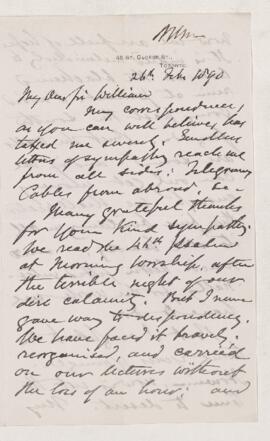 TORONTO.
26th Feb 1890
My dear Sir William
My correspondence,
as you can well believe, has
taxed me severely. Endless
letters of sympathy reach me
from all sides: Telegrams
Cables from abroad, &c -
Many grateful thanks
for your kind sympathy.
We read the 46th Psalm
at Morning worship, after
the terrible night of our
dire calamity. But I never
gave way to despondency.
We have faced it bravely,
reorganised, and carried
on our lectures without
the loss of an hour: and